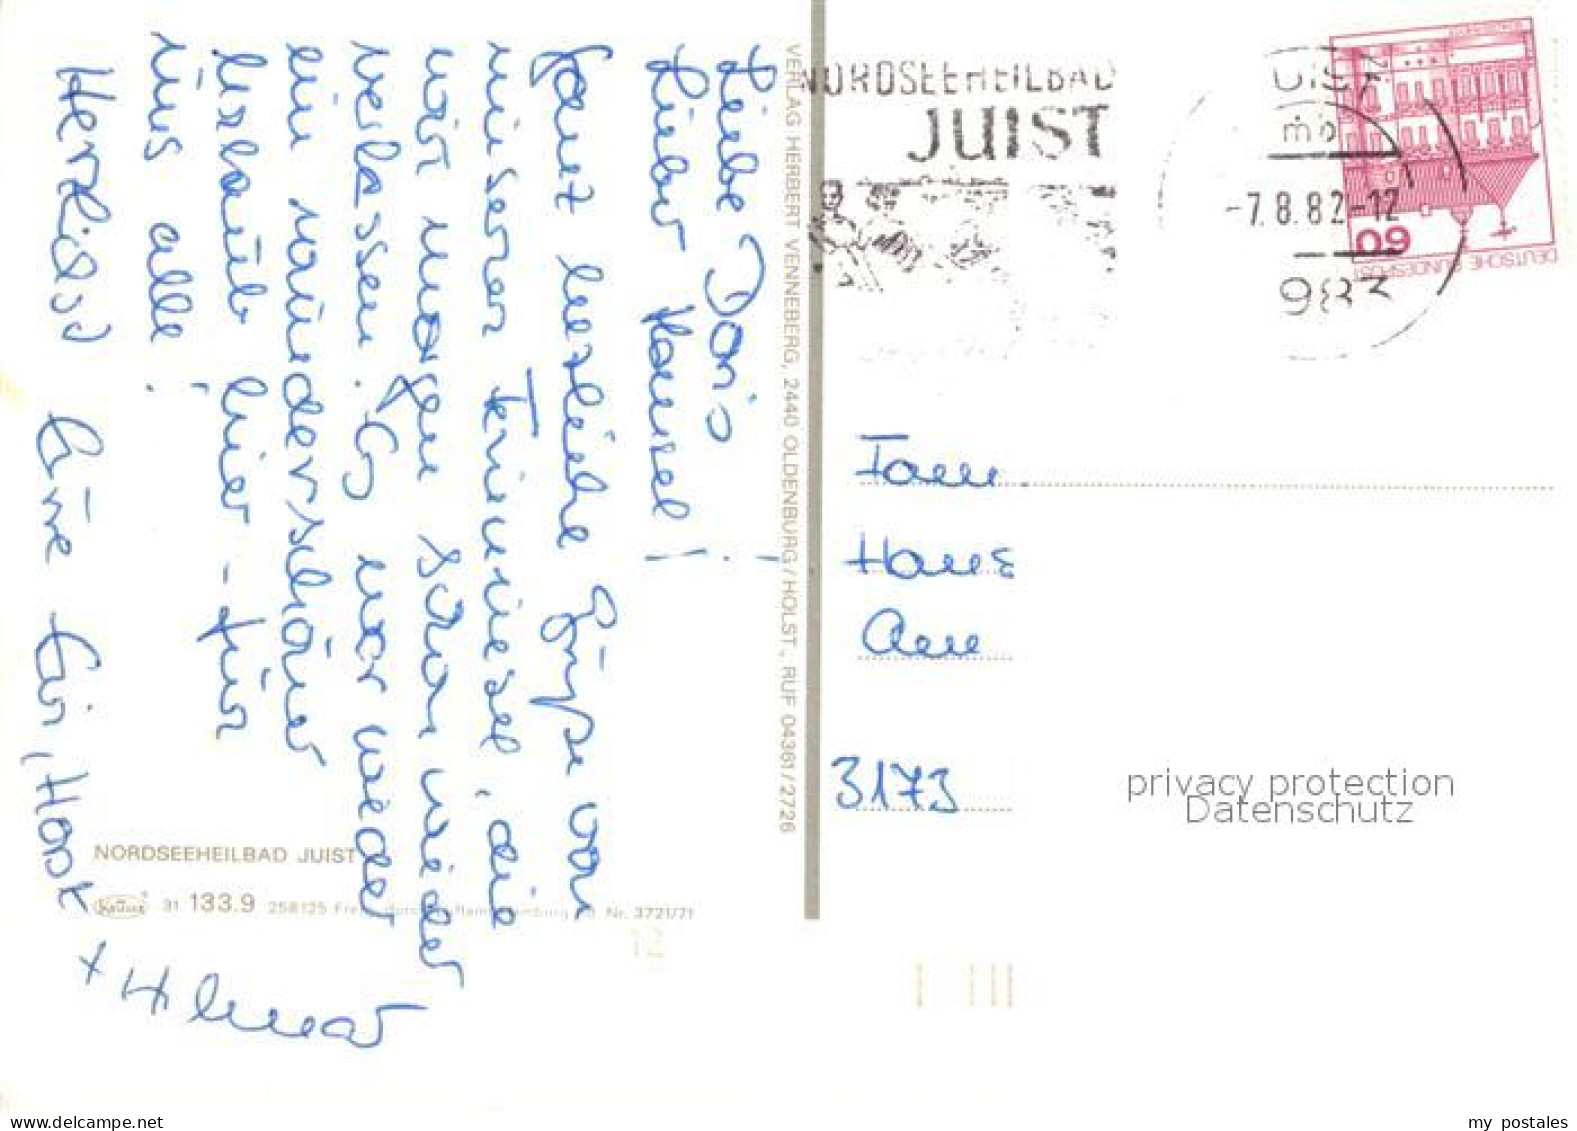 Liebe Doris!
Lieber Hansel!
Ganz herzliche Grüße von
unserer Trauminsel, die
wir morgen schon wieder
verlassen. Es war wieder
ein wunderschöner
Urlaub hier - für
uns alle!
Herzlichst
VERLAG HERBERT VENNEBERG, 2440 OLDENBURG/HOLST., RUF 04361/2726
NORDSEEHEILBAD JUIST
31 133.9 258125 Nr. 3721/71
12
NORDSEEHEILBAD
JUIST
JUIST
-7.8.82-12
983
60
DEUTSCHE BUNDESPOST
Fam.
Hans
3173
privacy protection
Datenschutz
www.delcampe.net
my_postales